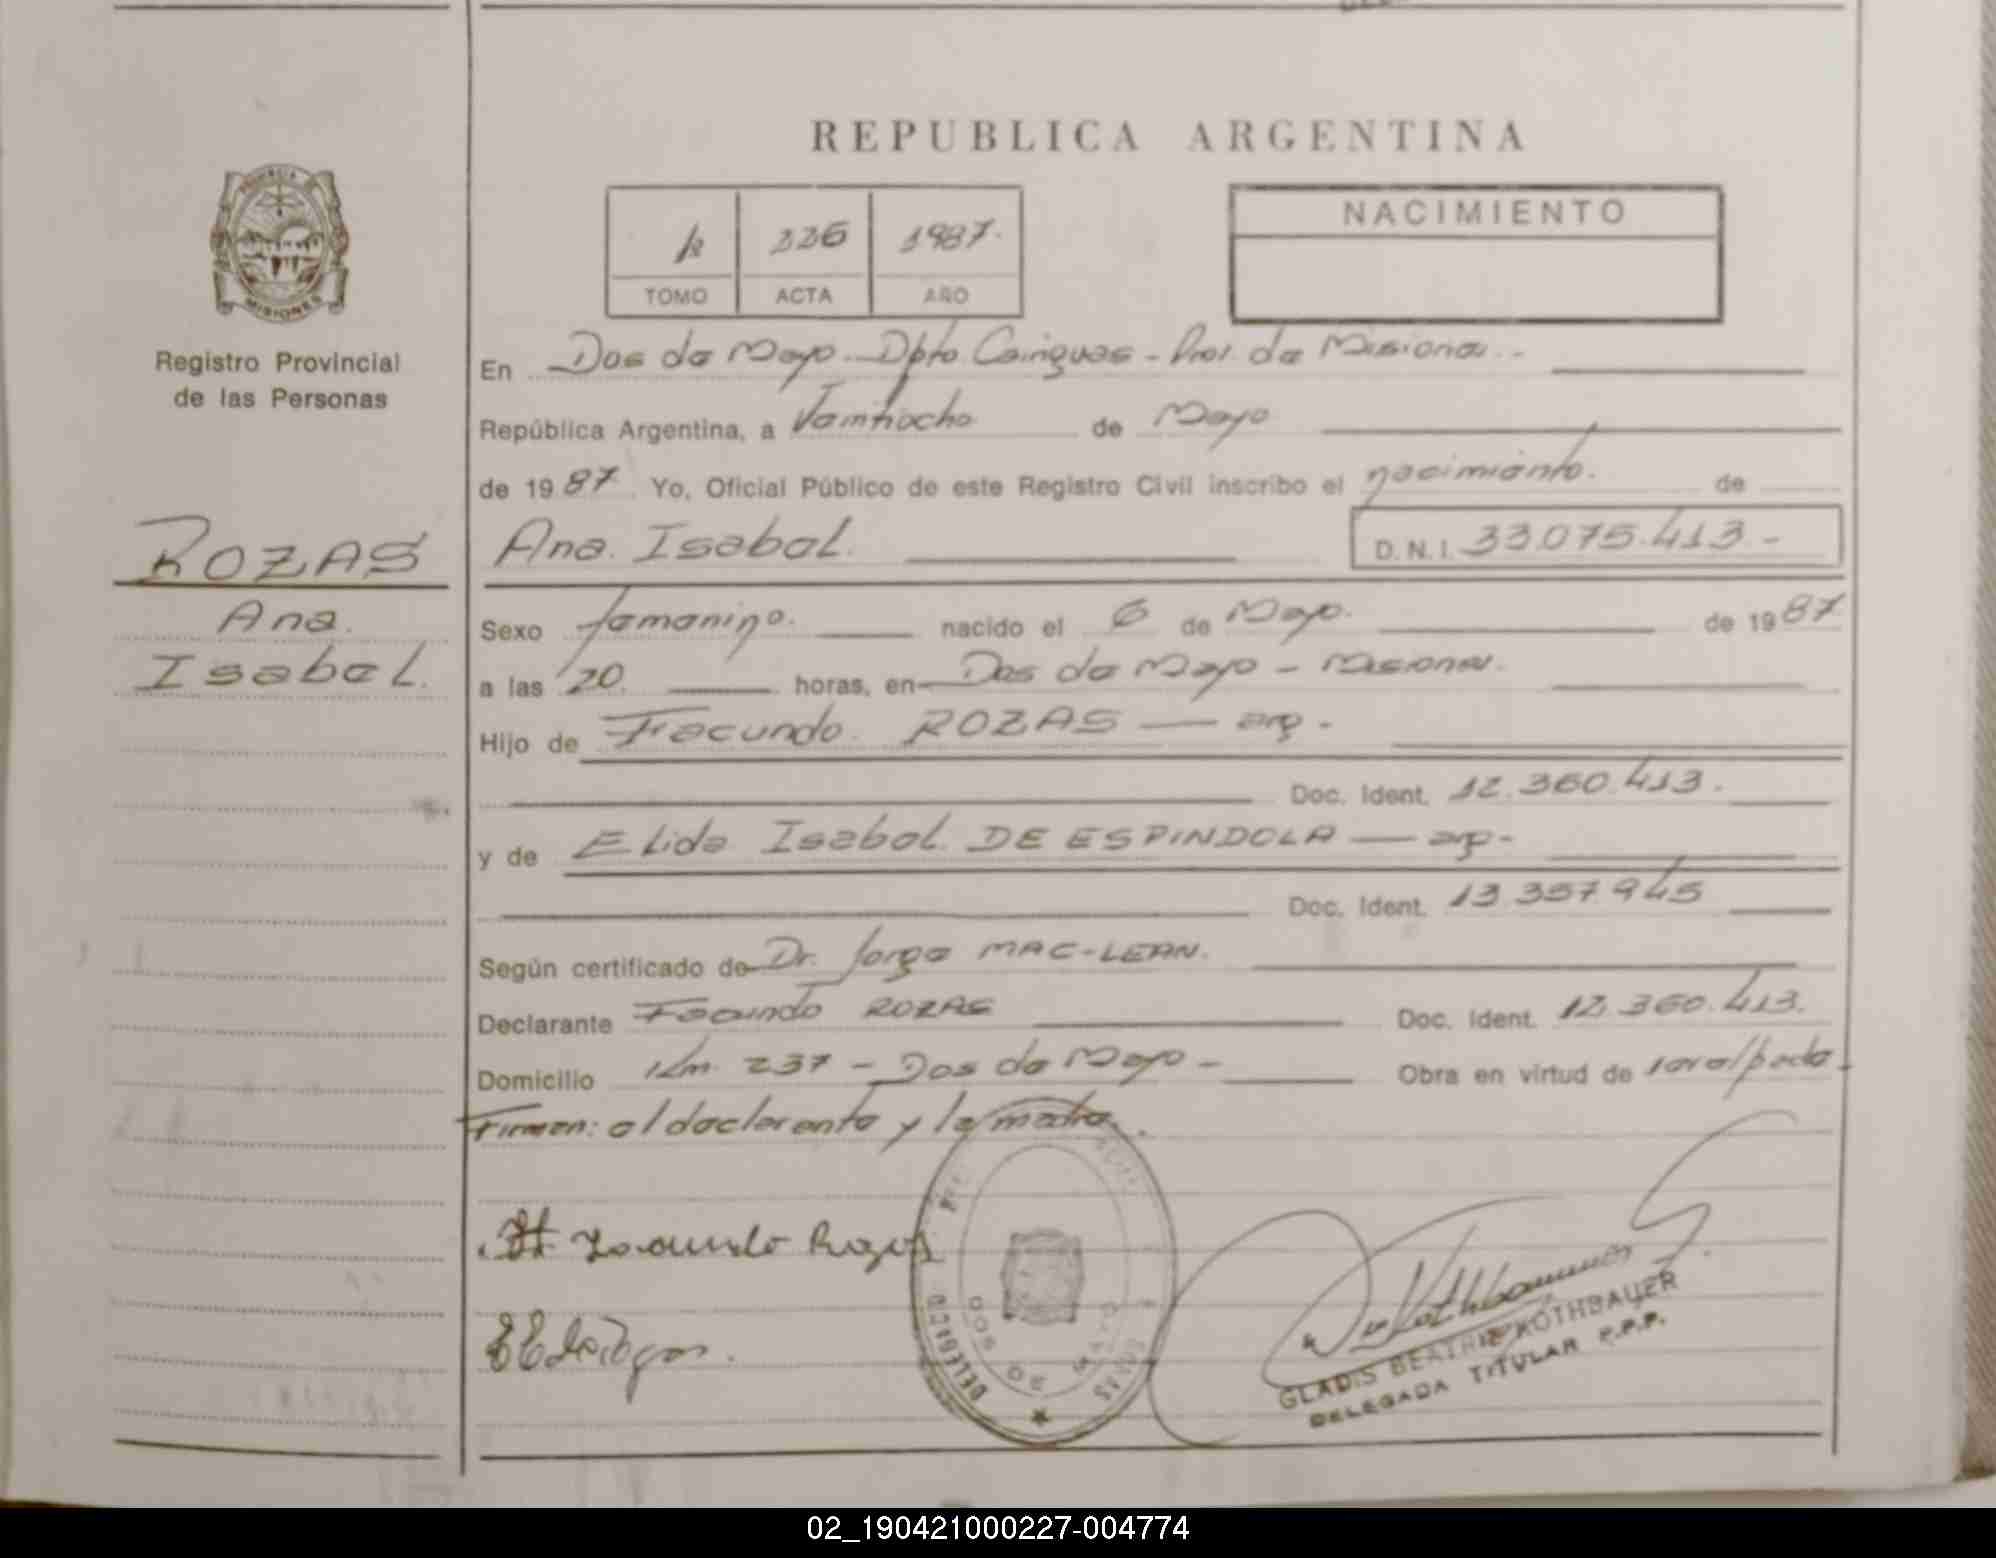 REPUBLICA ARGENTINA
PROVINCIA DE MISIONES
Registro Provincial
de las Personas
1987.
TOMO ACTA AÑO
NACIMIENTO
En Dos de Mayo - Dpto Cainguas - Prov. de Misiones. -
República Argentina, a Veintiocho de Mayo
de 1987. Yo, Oficial Público de este Registro Civil inscribo el nacimiento. de
ROZAS
Ana. Isabel. D.N.I. 33.075.413 -
Ana.
Isabel.
Sexo femenino. nacido el 6 de Mayo. de 1987
a las 20. horas, en Dos de Mayo - Misiones.
Hijo de Facundo. ROZAS — arg -
Doc. Ident. 12.360.413.
y de Elida Isabel DE ESPINDOLA — arg -
Doc. Ident. 13.357.945
Según certificado de Dr. Jorge MAC-LEAN.
Declarante Facundo ROZAS Doc. Ident. 12.360.413.
Domicilio Km. 237 - Dos de Mayo - Obra en virtud de
Firman: el declarante y la madre.
Facundo Rozas
DELEGACIO
DOS DE MAYO
GLADIS BEATRIZ ROTHBAUER
DELEGADA TITULAR R.P.P.
02_190421000227-004774